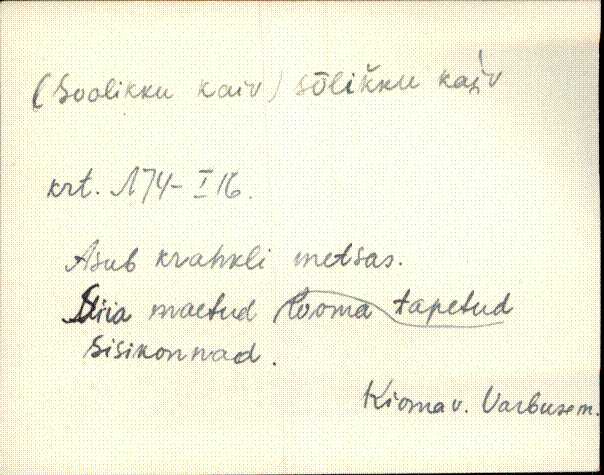 (Soolikku kaiv) sōlikku kaiv
krt. 174-I 16.
Asub krahvli metsas.
Siia maetud looma tapetud
sisikonnad.
Kioma v. Varbuse m.